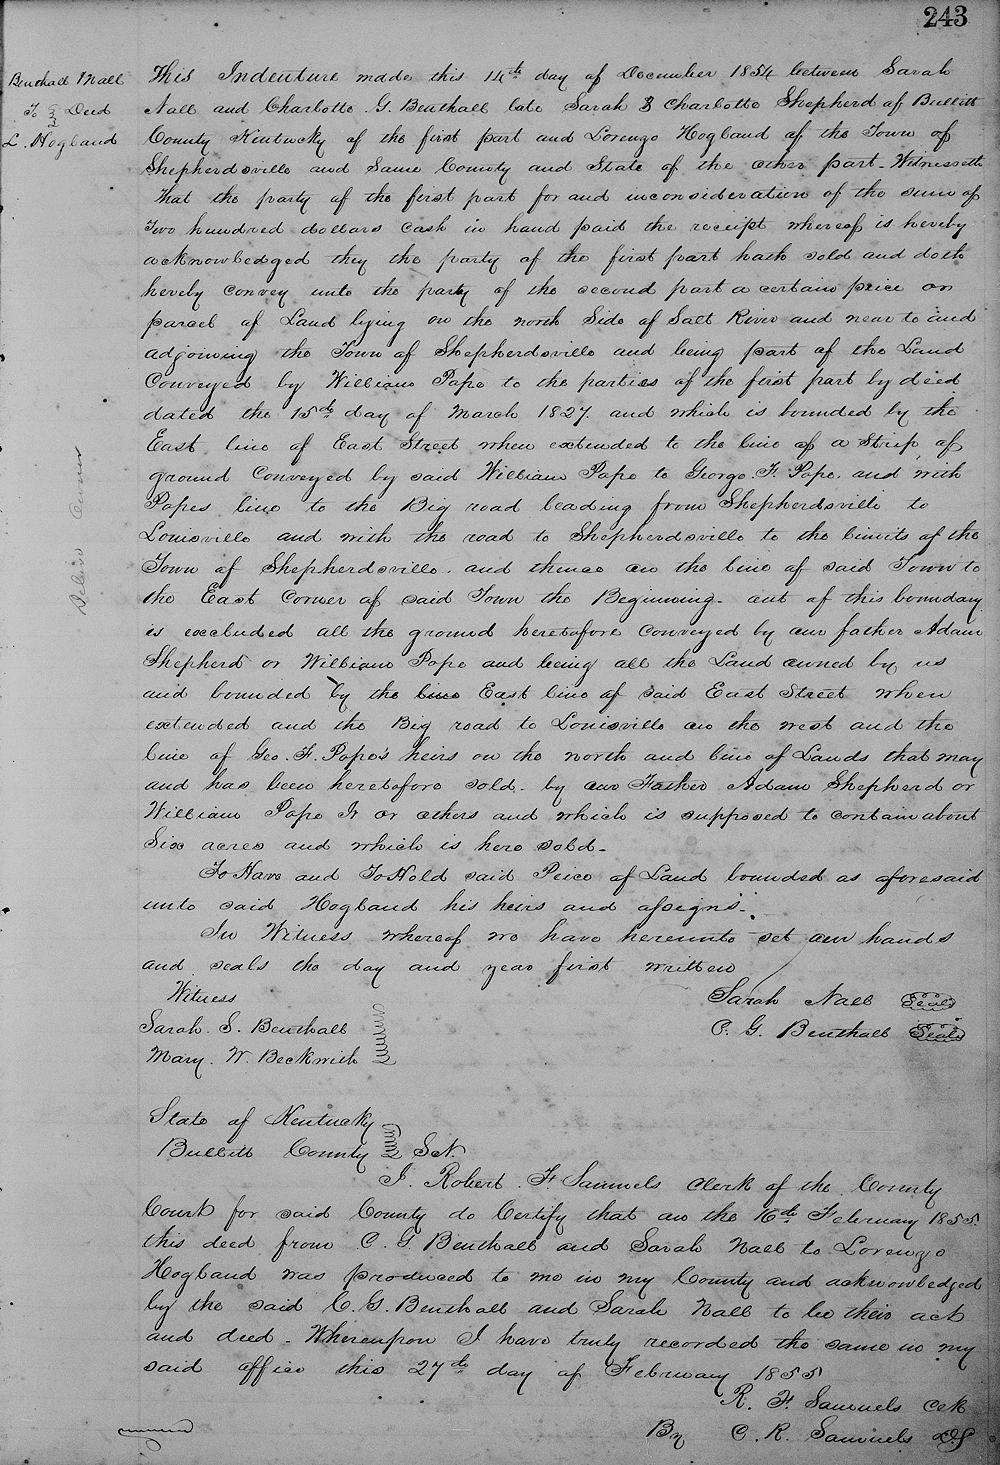 243
Benthall & Nall
To } Deed
L. Hogland
This Indenture made this 14th day of December 1854 between Sarah
Nall and Charlotte G. Benthall late Sarah & Charlotte Shepherd of Bullitt
County Kentucky of the first part and Lorenzo Hogland of the Town of
Shepherdsville and Same County and State of the other part. Witnesseth
That the party of the first part for and inconsideration of the sum of
Two hundred dollars cash in hand paid the receipt whereof is hereby
acknowledged they the party of the first part hath sold and doth
hereby convey unto the party of the second part a certain peice or
parcel of Land lying on the north Side of Salt River and near to and
adjoining the Town of Shepherdsville and being part of the Land
Conveyed by William Pope to the parties of the first part by deed
dated the 15th day of March 1827 and which is bounded by the
East line of East Street when extended to the line of a Strip of
ground Conveyed by said William Pope to George F. Pope. and with
Popes line to the Big road leading from Shepherdsville to
Louisville and with the road to Shepherdsville to the limits of the
Town of Shepherdsville. and thence on the line of said Town to
the East Corner of said Town the Beginning. out of this boundary
is excluded all the ground heretofore conveyed by our father Adam
Shepherd or William Pope and being all the Land owned by us
and bounded by the line East line of said East Street when
extended and the Big road to Louisville on the west and the
line of Geo. F. Pope's heirs on the north and line of Lands that may
and has been heretofore sold. by our Father Adam Shepherd or
William Pope Jr or others and which is supposed to contain about
Six acres and which is here sold.
To Have and To Hold said Peice of Land bounded as aforesaid
unto said Hogland his heirs and assigns.
In Witness whereof we have hereunto set our hands
and seals the day and year first written
Witness
Sarah Nall Seal
Sarah. S. Benthall
C. G. Benthall Seal
Mary. W. Beckwith
State of Kentucky
Bullitt County } Sct.
I. Robert F Samuels Clerk of the County
Court for said County do Certify that on the 16th February 1855.
this deed from C. G. Benthall and Sarah Nall to Lorenzo
Hogland was produced to me in my County and acknowledged
by the said C. G. Benthall and Sarah Nall to be their act
and deed. Whereupon I have truly recorded the same in my
said office this 27th day of February 1855
R. F. Samuels Clk
By C. R. Samuels DC